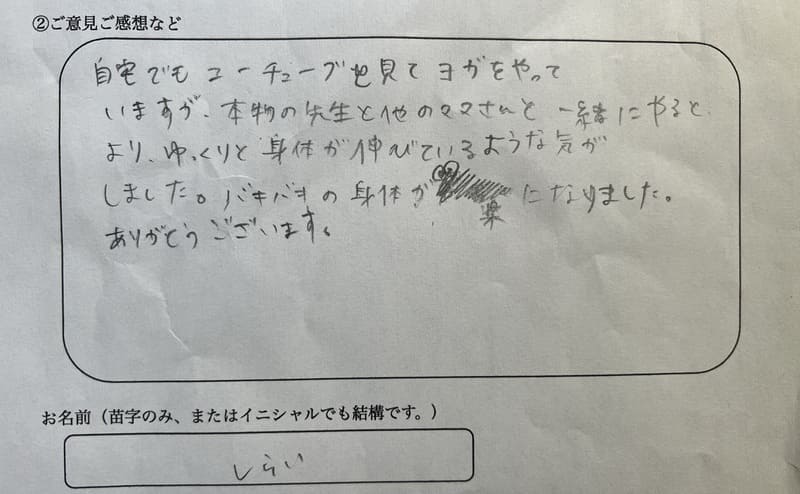 ②ご意見ご感想など
自宅でもユーチューブを見てヨガをやって
いますが、本物の先生と他のママさんと一緒にやると、
より、ゆっくりと身体が伸びているような気が
しました。バキバキの身体が楽になりました。
ありがとうございます。
お名前（苗字のみ、またはイニシャルでも結構です。）
しらい